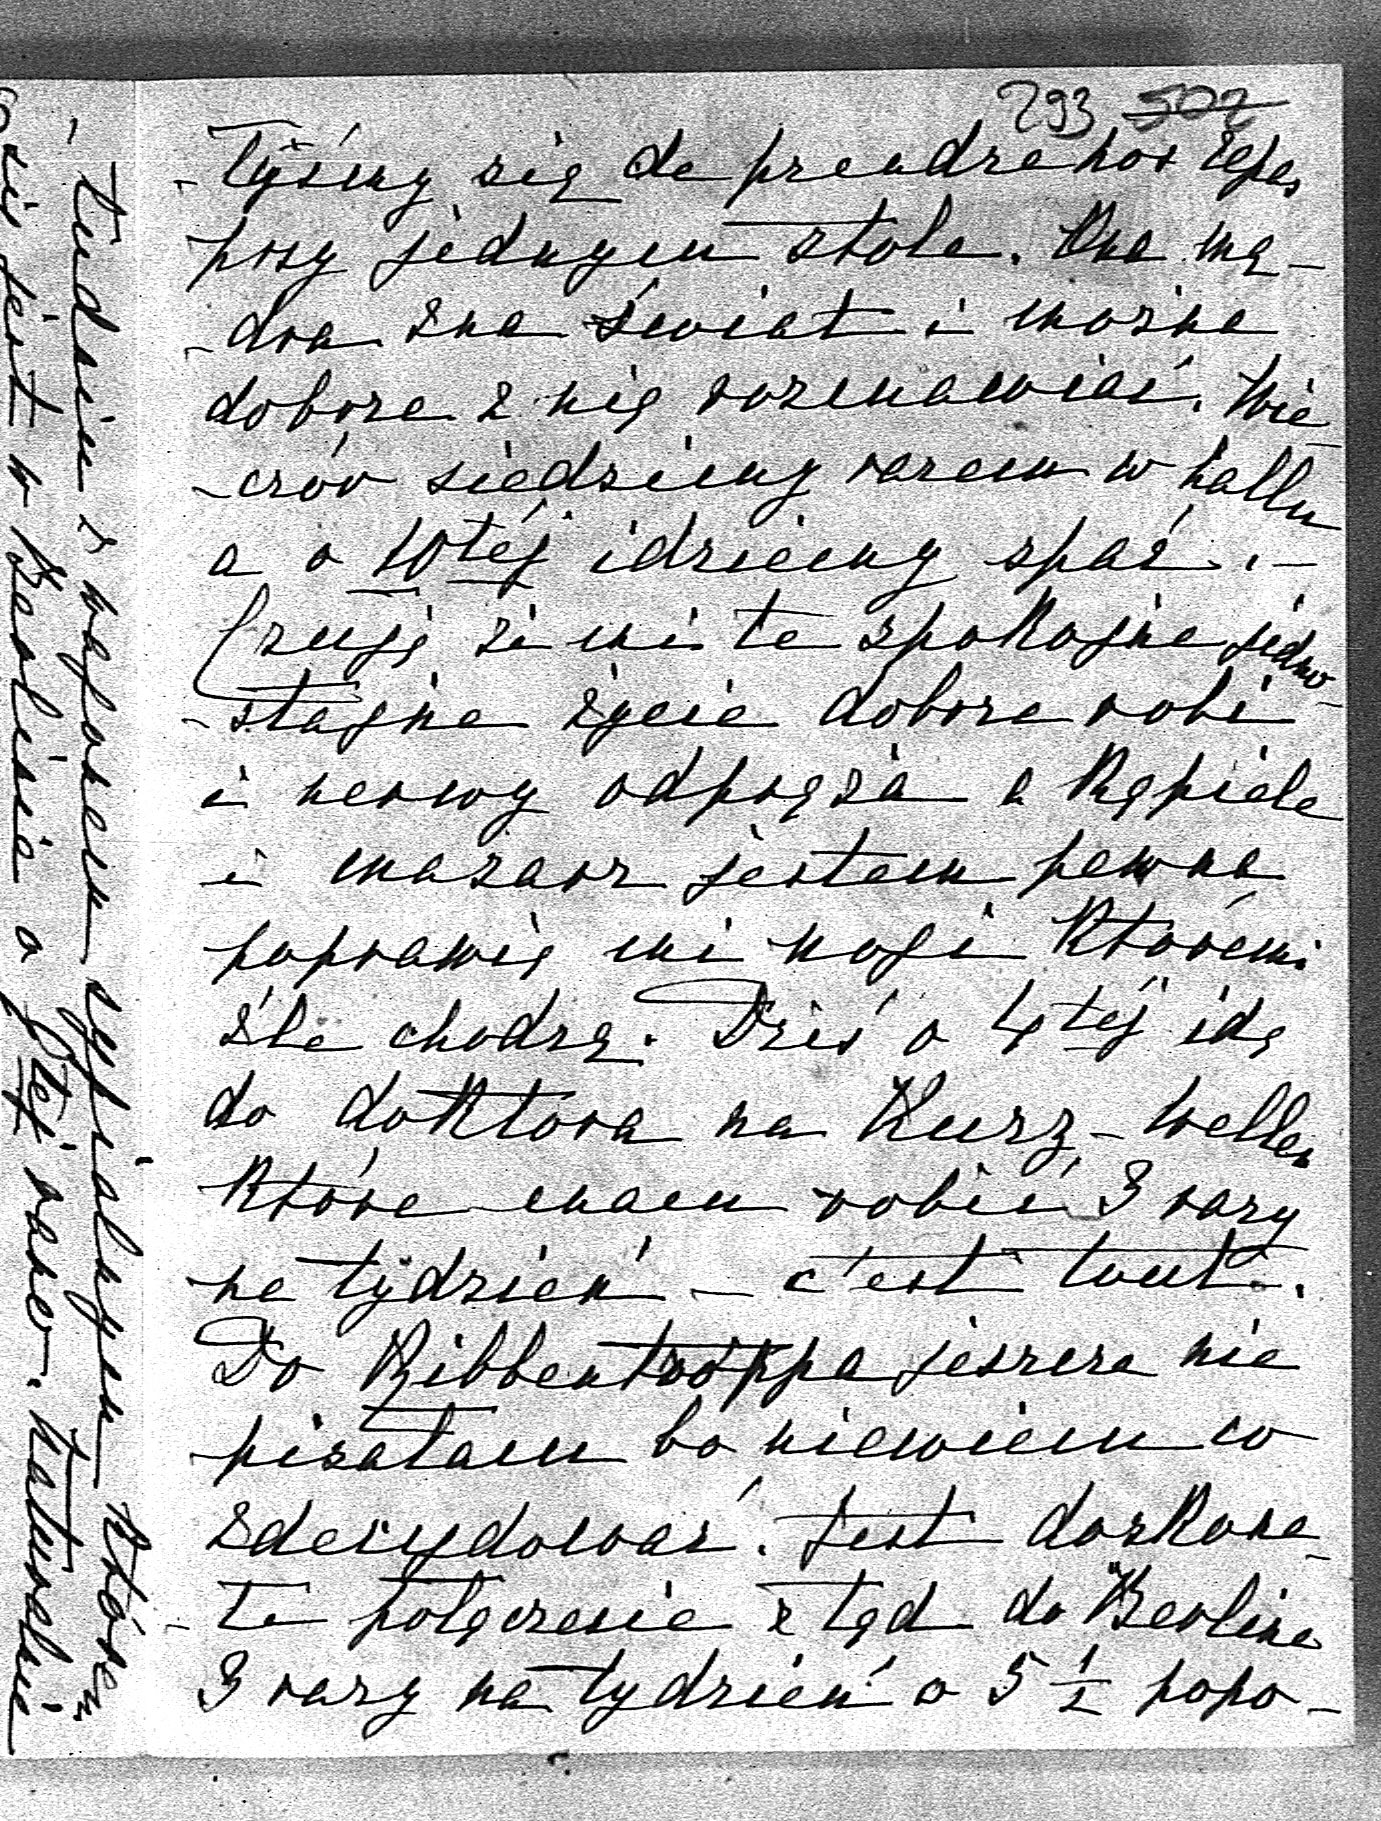 293 502
-łyśmy się de prendre nos repas
przy jednym stole. Ona mą-
-dra zna świat i można
dobrze z nią rozmawiać. Wie-
-czór siedzimy razem w hallu
a o 10téj idziemy spać. –
Czuję że mi te spokojne jedno-
-stajne życie dobrze robi
i nerwy odpręża a kąpiele
i masarz jestem pewna
poprawią mi nogi któremi
źle chodzę. Dziś o 4téj idę
do doktora na Kurz-Wellen
które mam robić 3 razy
na tydzień – c'est tout.
Do Ribbentroppa jeszcze nie
pisałam bo niewiem co
zdecydować. Jest doskona-
-łe połączenie z tąd do Berlina
3 razy na tydzień o 5 ½ popo-
-łudniu z wagonem sypialnym którem
się jest w Berlinie o 8tej rano. Naturalnie